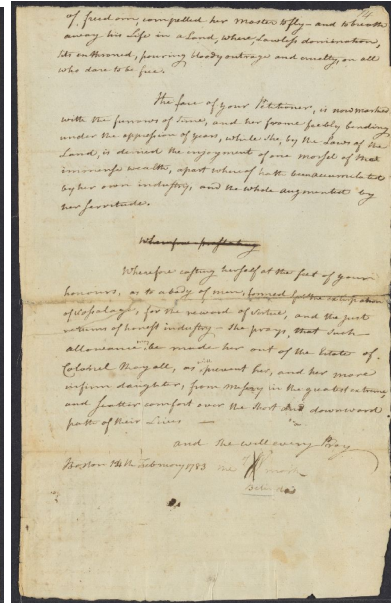 of freedom, compelled her Master to fly - and to breathe
away his Life in a Land, where, Lawless domination
sits enthroned, pouring bloody outrage and cruelty, on all
who dare to be free.
The face of your Petitioner, is now marked
with the furrows of time, and her frame feebly bending
under the oppression of years, while she, by the Laws of the
Land, is denied the enjoyment of one morsel of that
immense wealth, apart whereof hath been accumulated
by her own industry, and the whole augmented by
her servitude.
Wherefore
Wherefore casting herself at the feet of your
honours, as to a body of men, formed for the extirpation
of vassalage, for the reward of Virtue, and the just
returns of honest industry - she prays, that such
allowance may be made her out of the Estate of
Colonel Royall, as will prevent her, and her more
infirm daughter, from misery in the greatest extreme,
and scatter comfort over the short and downward
path of their Lives -
and she will ever Pray
Boston 14th February 1783 the mark of
Belinda